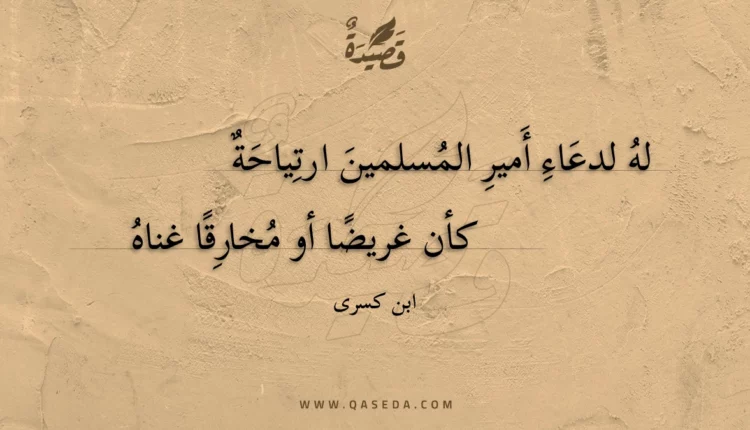 قَصِيْدَةٌ
لهُ لدعَاءِ أَميرِ المُسلمينَ ارتِياحَةٌ
كأن غريضًا أو مُخارِقًا غناهُ
ابن كسرى
WWW.QASEDA.COM